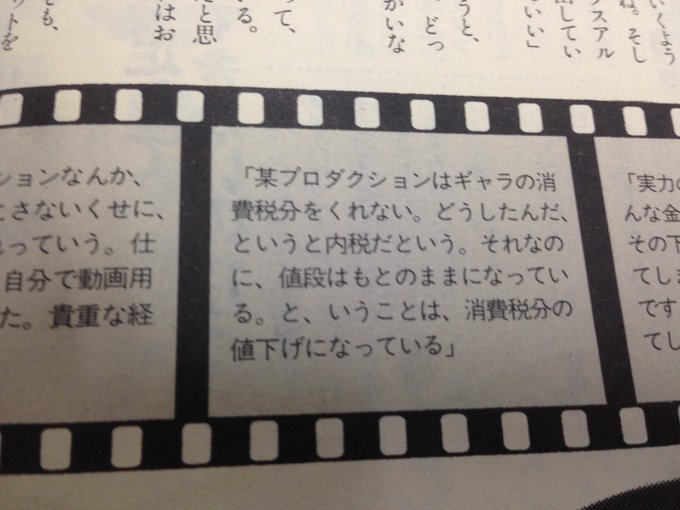 いくよう
ね。そし
スアル
出してい
いい」
うと、
、どっ
かいな
って、
いる。
だと思
はお
とも、
ットを
ションなんか、
とさないくせに、
っていう。仕
自分で動画用
た。貴重な経
「某プロダクションはギャラの消
費税分をくれない。どうしたんだ、
というと内税だという。それなの
に、値段はもとのままになってい
る。と、いうことは、消費税分の
値下げになっている」
「実力の
んな金
その下
てしま
です
てし